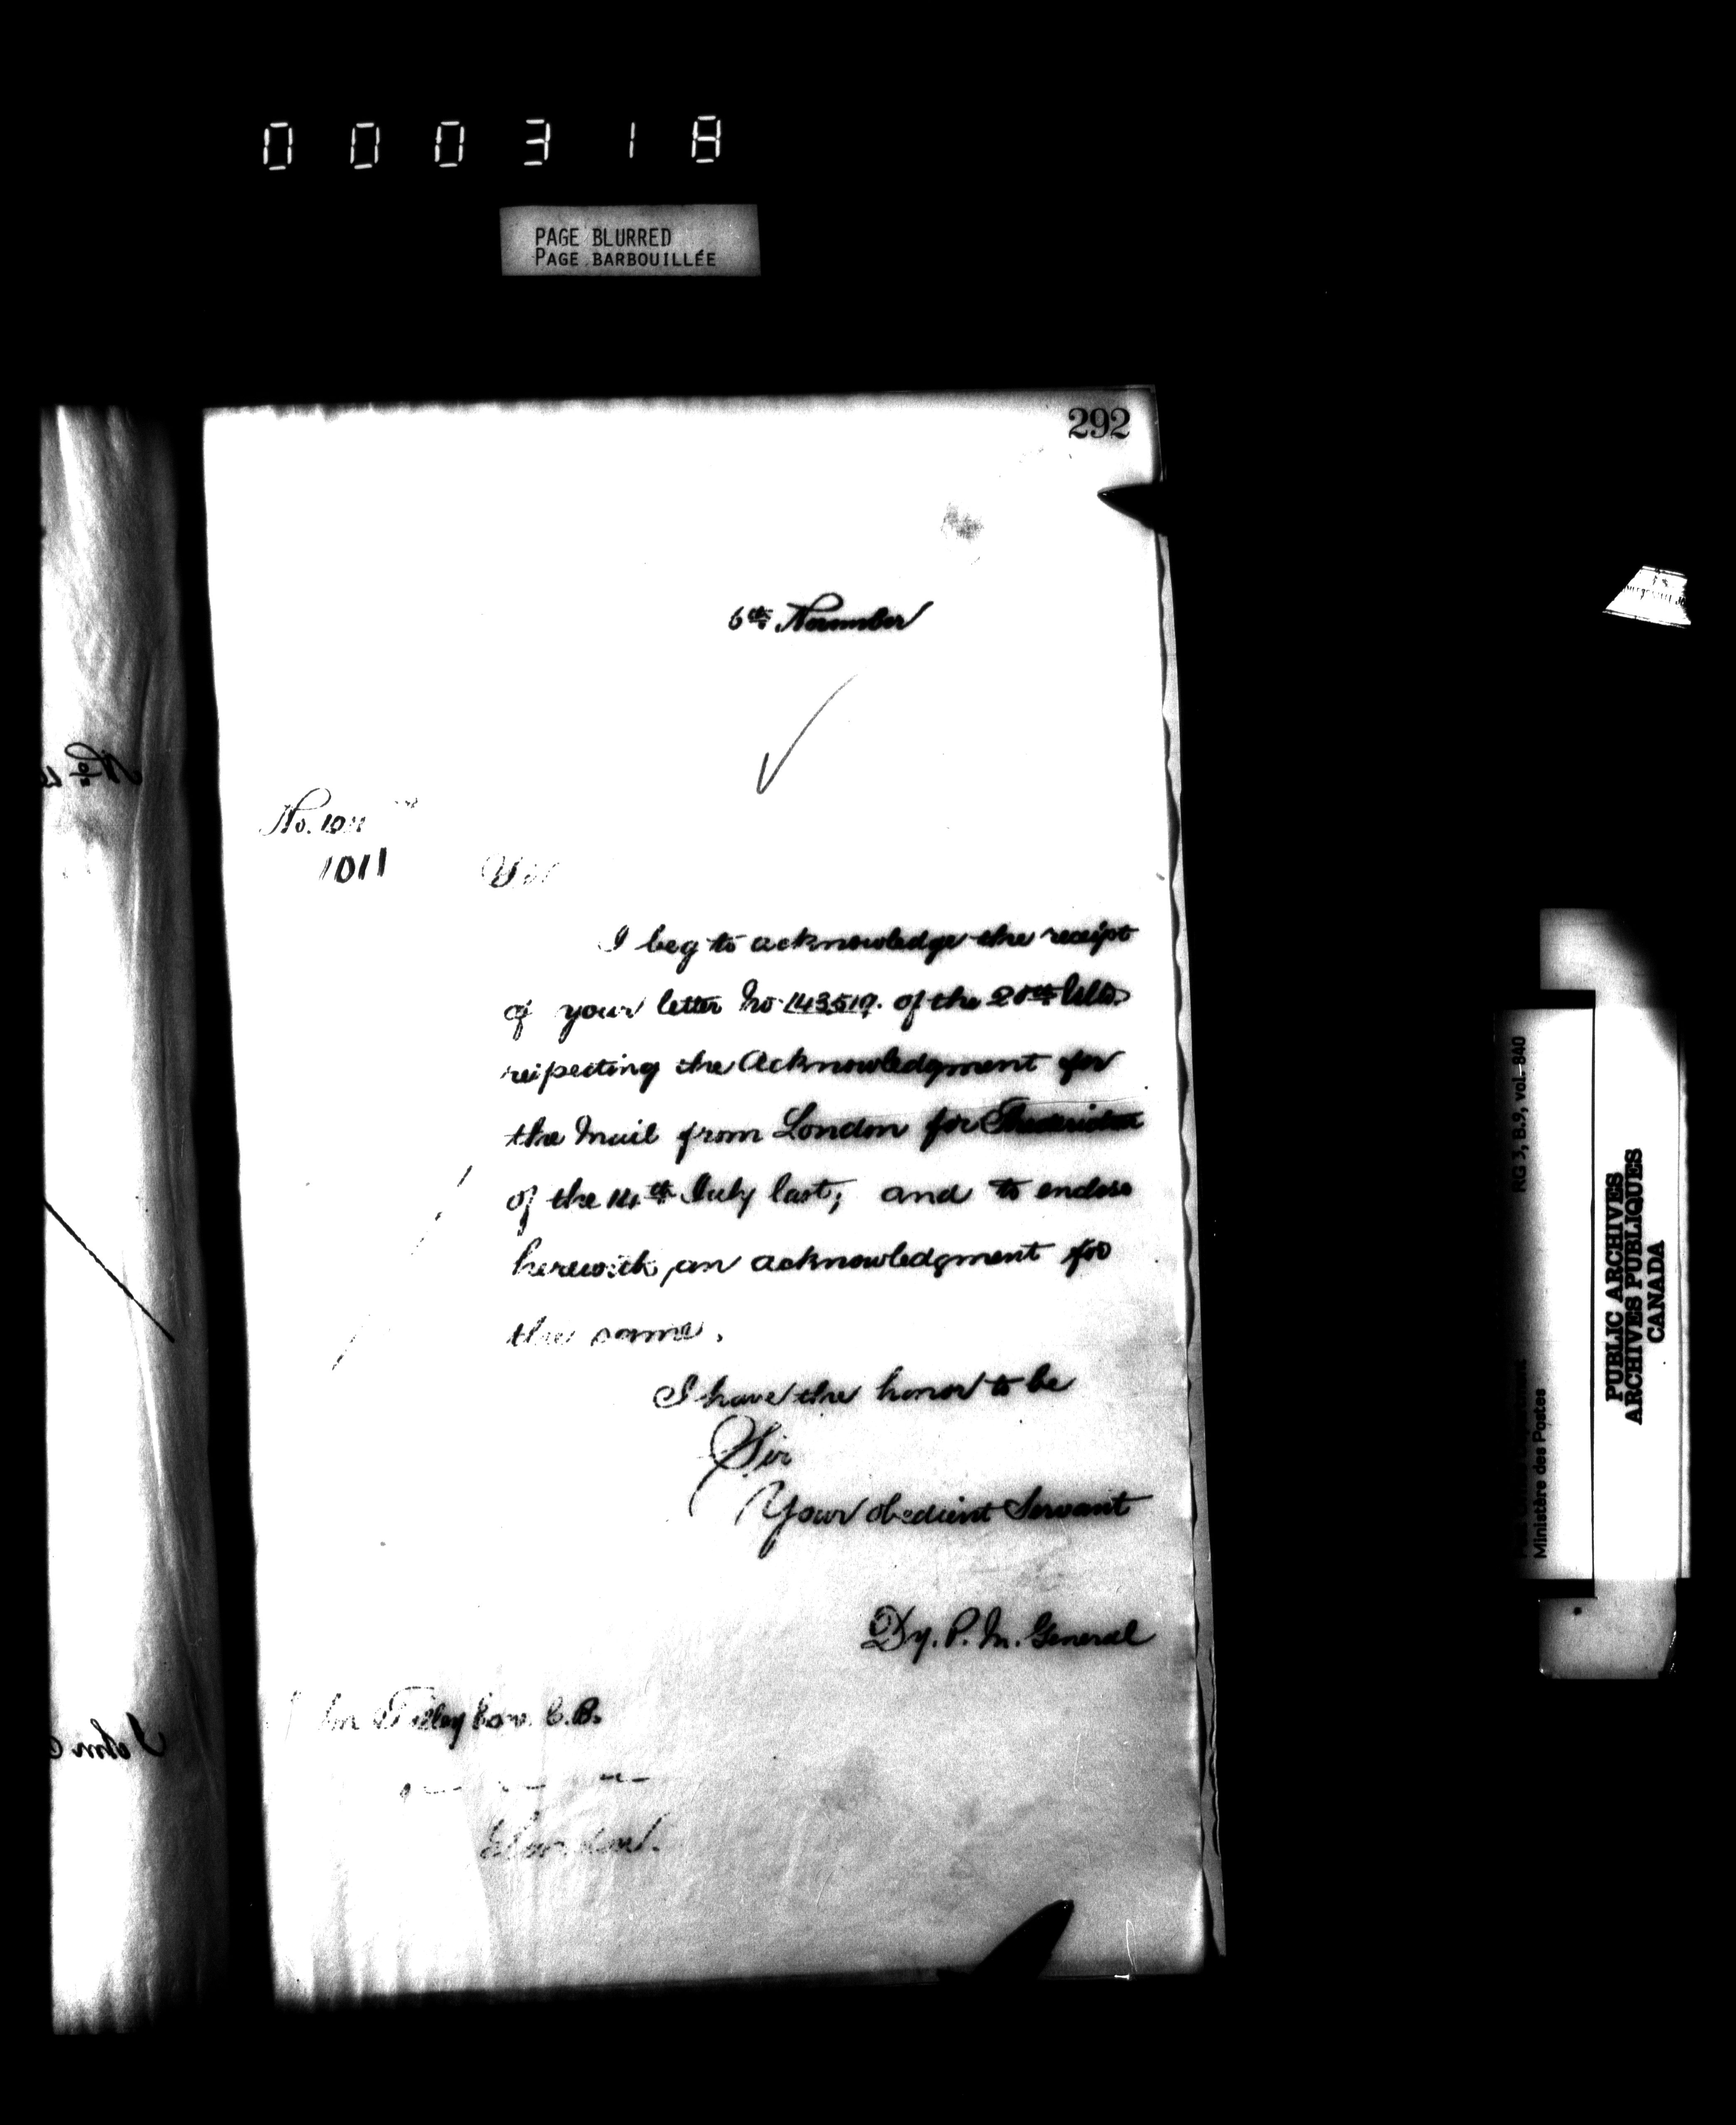 000318
PAGE BLURRED
PAGE BARBOUILLÉE
292
6th November
No. 1011
1011
Sir
I beg to acknowledge the receipt
of your letter No. 143519. of the 20th Ulto.
respecting the Acknowledgment for
the Mail from London for Fredericton
of the 14th July last, and to enclose
herewith, an acknowledgment for
the same.
I have the honor to be
Sir
Your obedient Servant
Dy. P. M. General
John Tilley Esq. C.B.
London.
RG 3, B.9, vol. 840
Ministère des Postes
PUBLIC ARCHIVES
ARCHIVES PUBLIQUES
CANADA